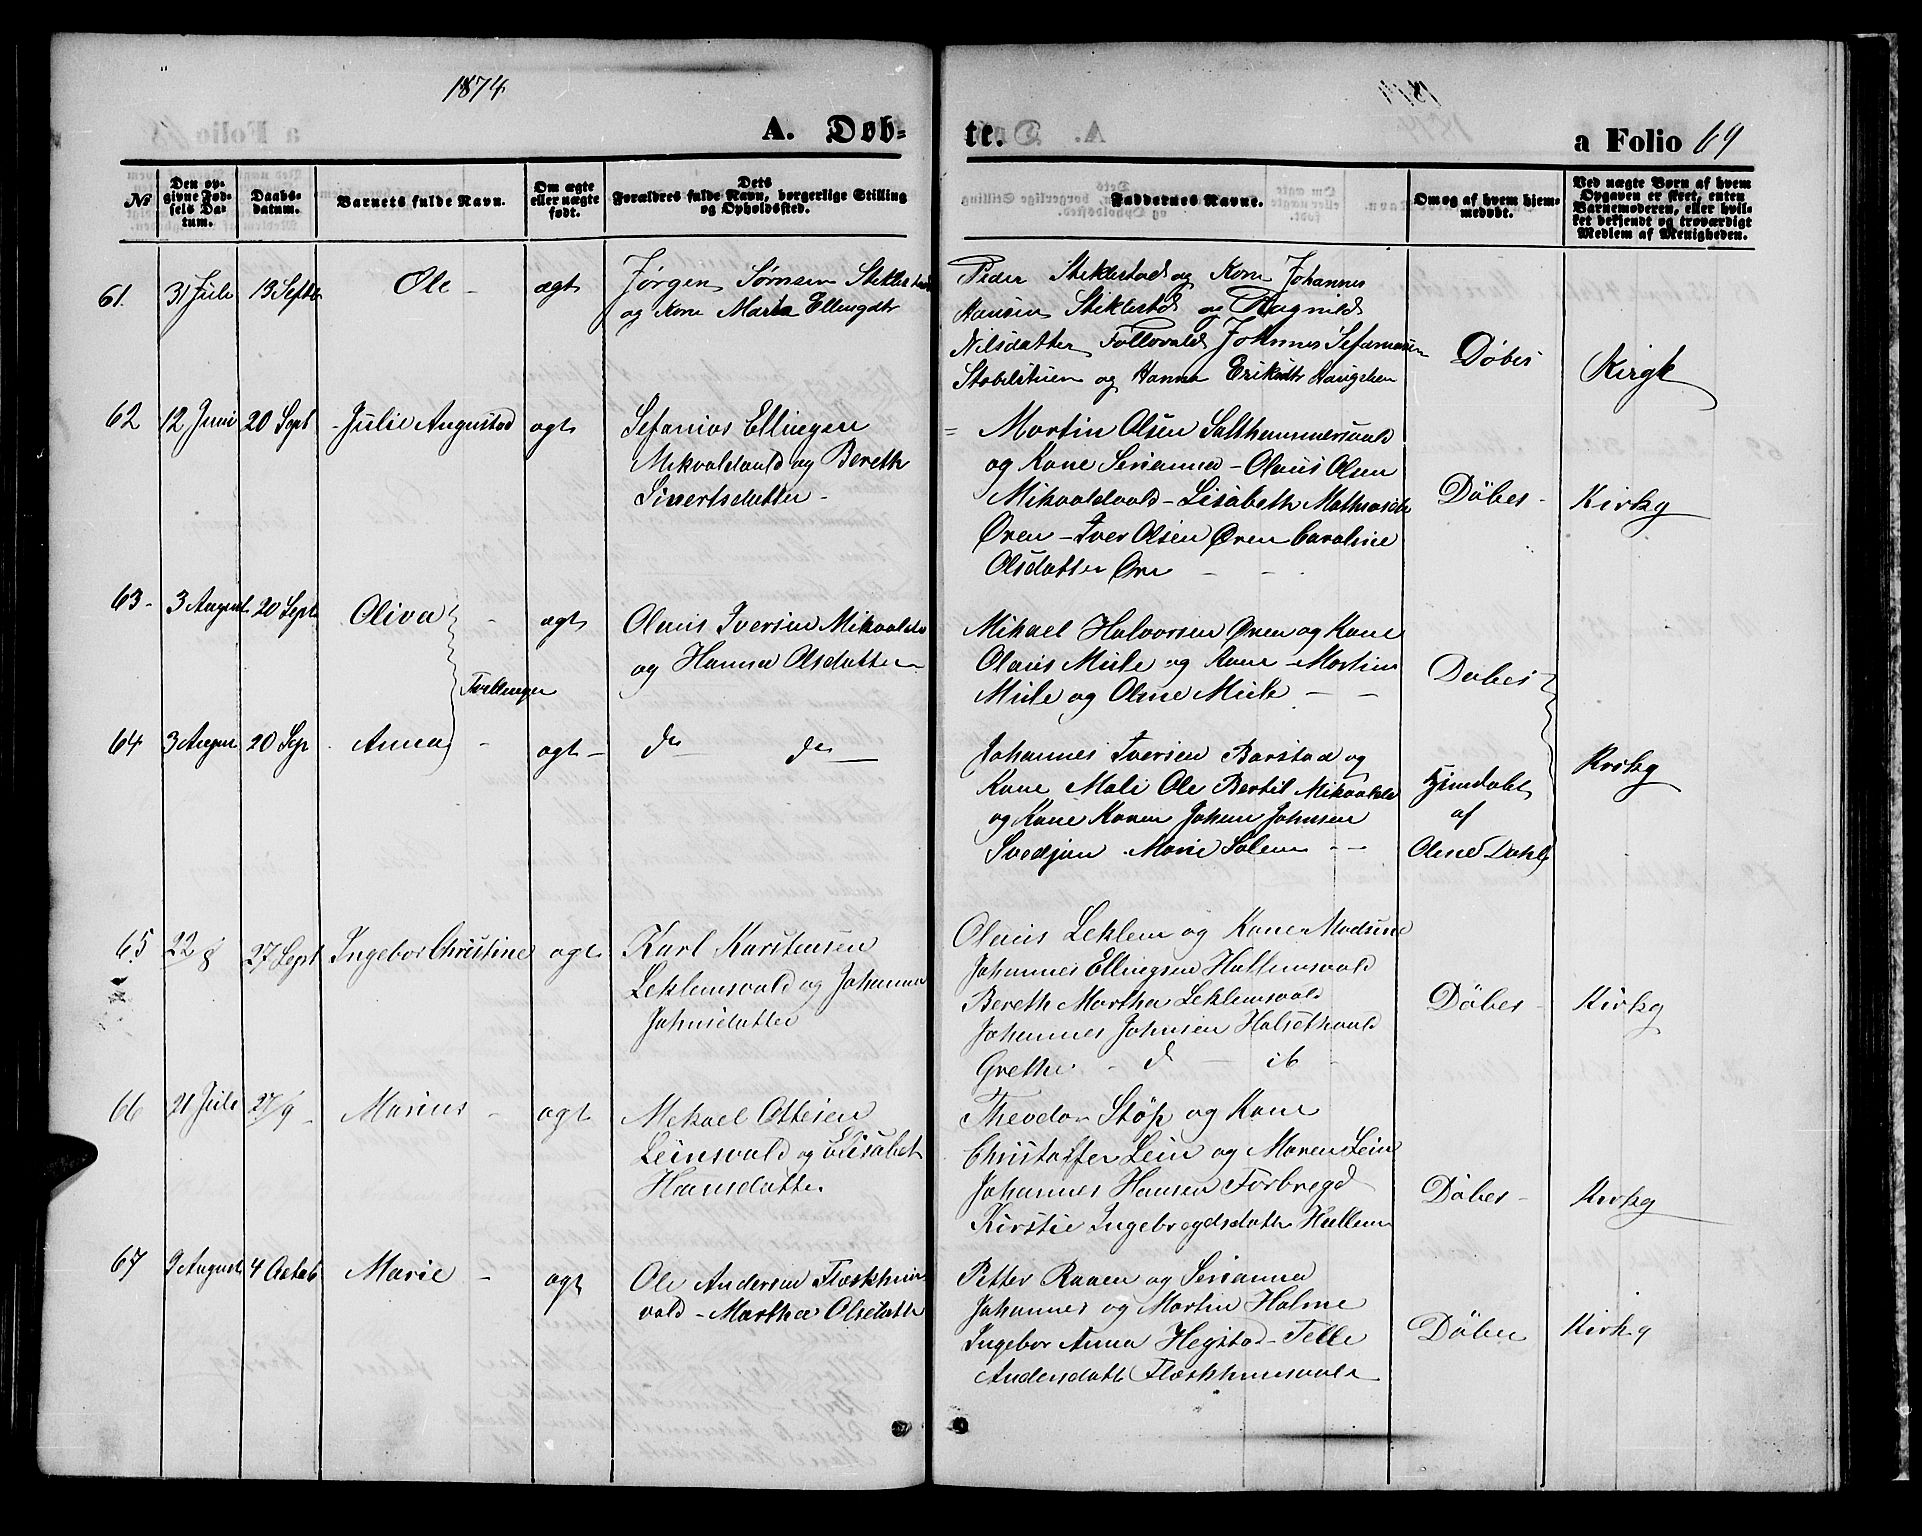 1874
A. Døb-
te.
a Folio 69
№
Den op-
givne Fød-
sels Da-
tum.
Daabs-
datum.
Barnets fulde Navn.
Om ægte
eller uægte
født.
Dets
Forældres fulde Navn, borgerlige Stilling
og Opholdssted.
Faddernes Navne.
Om og af hvem hjem-
medøbt.
Ved uægte Børn af hvem
Opgaven er skeet, enten
Barnemoderen, eller hvil-
ket bekjendt og troværdigt
Medlem af Menigheden.
61. 31 Juli 13 Septb Ole - ægt
Jørgen Sørnsen Stiklestad
og Kone Marta Ellingdtr
Peder Stiklestad og Kone Johannes
Hansen Stiklestad og Ragnild
Nilsdatter Follovald Johannes
og Hanna Eriksdtr Haugsken
Döbes
Kirgk
62 12 Juni 20 Sept - Julie Augusta agt
Sefanias Ellingsen
Mikvoldvald og Bereth
Sivertsdatter -
Martin Olsen Salthammersvald
og Kone Serianna - Olaus Olsen
Mikvoldvald - Lisabeth Mathiasdtr
Øren - Iver Olsen Øren Caroline
Olsdatter Øre - -
Döbes -
Kirkg
63 - 3 August 20 Sept Oliva - ægt
Tvillinger
Olaus Iversen Mikvolds
og Hanna Olsdatter
Mikael Halvorsen Øren og Kone
Olaus Mikle og Kone - Martin
Mikle og Oline Mikle - -
Dobes
64 3 August 20 Sep Anna - agt -
do do
Johannes Iversen Barstad og
Kone Mali Ole Bertil Mikvolds
og Kone Karen Johan Johnsen
Svedjan Marie Salem - -
Hjemdøbt
af
Oline Dahl
Kirkg
65 22/8 27 Sept Ingebor Christine agt
Karl Karstensen
Leklemsvald og Johanna
Johnsdatter
Olaus Leklem og Kone Madsine
Johannes Ellingsen Hallemsvald
Bereth Martha Leklemsvald
Johannes Johnsen Halsethvald
Grethe - d - ib
Döbes -
Kirkg
66 21 Juli 27/9 - Marius - agt
Mekael Ottesen
Leinsvald og Elisabet
Hansdatter
Theodor Støp og Kone
Christoffer Lein og Maren Lein
Johannes Hansen Forbregd
Kirstie Ingebregdsdatter Hallem
Döbes -
Kirkg
67 9 August 4 Octob Marie - agt
Ole Andersen Fleskhus
vald - Martha Olsdatter
Petter Raaen og Serianna
Johannes og Martin Holme
Ingebor Anna Hegstad - Telle
Andersdatt Fleskhusvald
Döbes
Kirkg